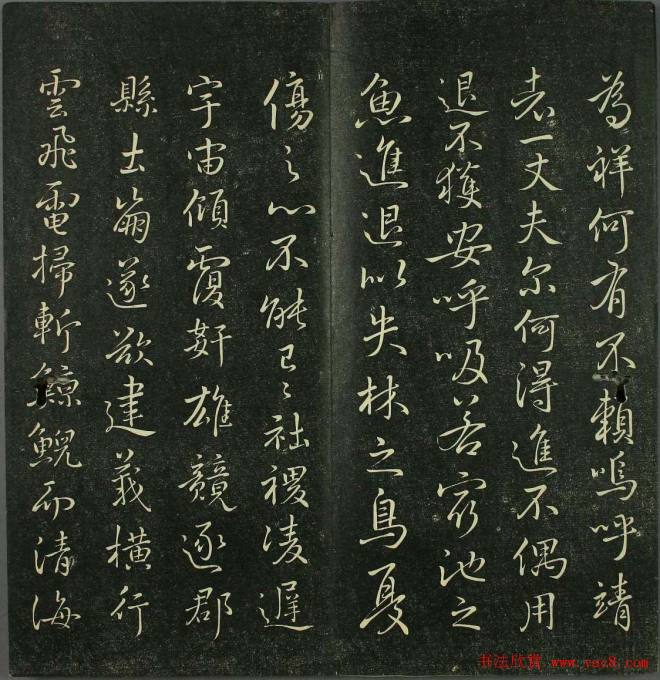 為祥何有不賴嗚呼靖
者一丈夫尔何得進不偶用
退不獲安呼吸若窮池之
魚進退似失林之鳥憂
傷之心不能已〻社稷凌遲
宇宙傾覆奸雄競逐郡
縣土崩遂欲建義橫行
雲飛電掃斬鯨鯢而清海
书法欣赏 www.yac8.com